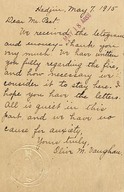 Hadjin, May 7, 1915
Dear Mr. Peet.
We received the telegram
and money. Thank you
very much. We have written
you fully regarding the
and how necessary we
consider it to stay here. I
hope you have the letters.
All is quiet in this
part and we have no
cause for anxiety.
Yours truly,
M. Vaughan.